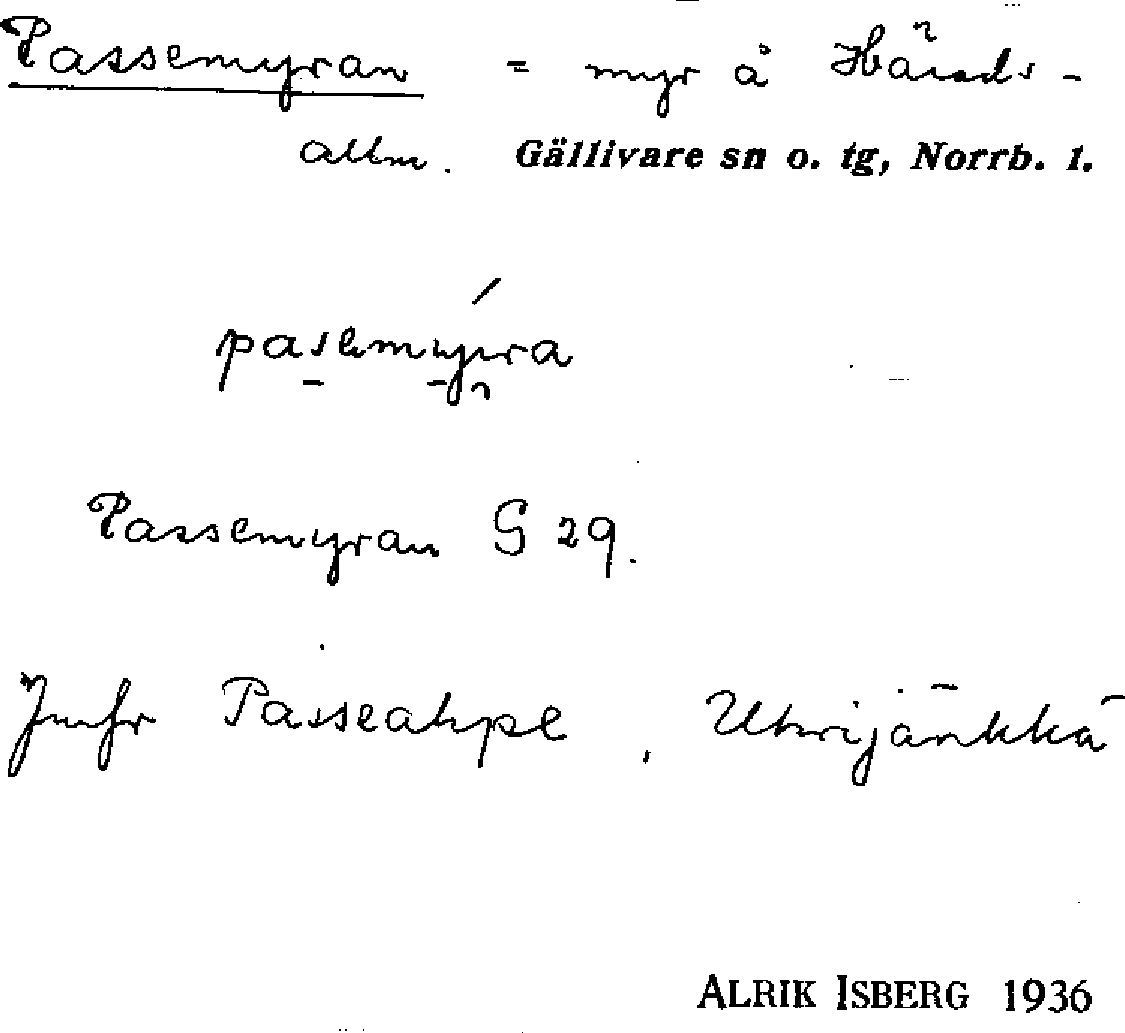 Passemyran = myr å Härads-
allm. Gällivare sn o. tg, Norrb. l.
pasemyra
Passemyran G 29.
Jmfr Passeahpe, Uhrijänkkä
ALRIK ISBERG 1936